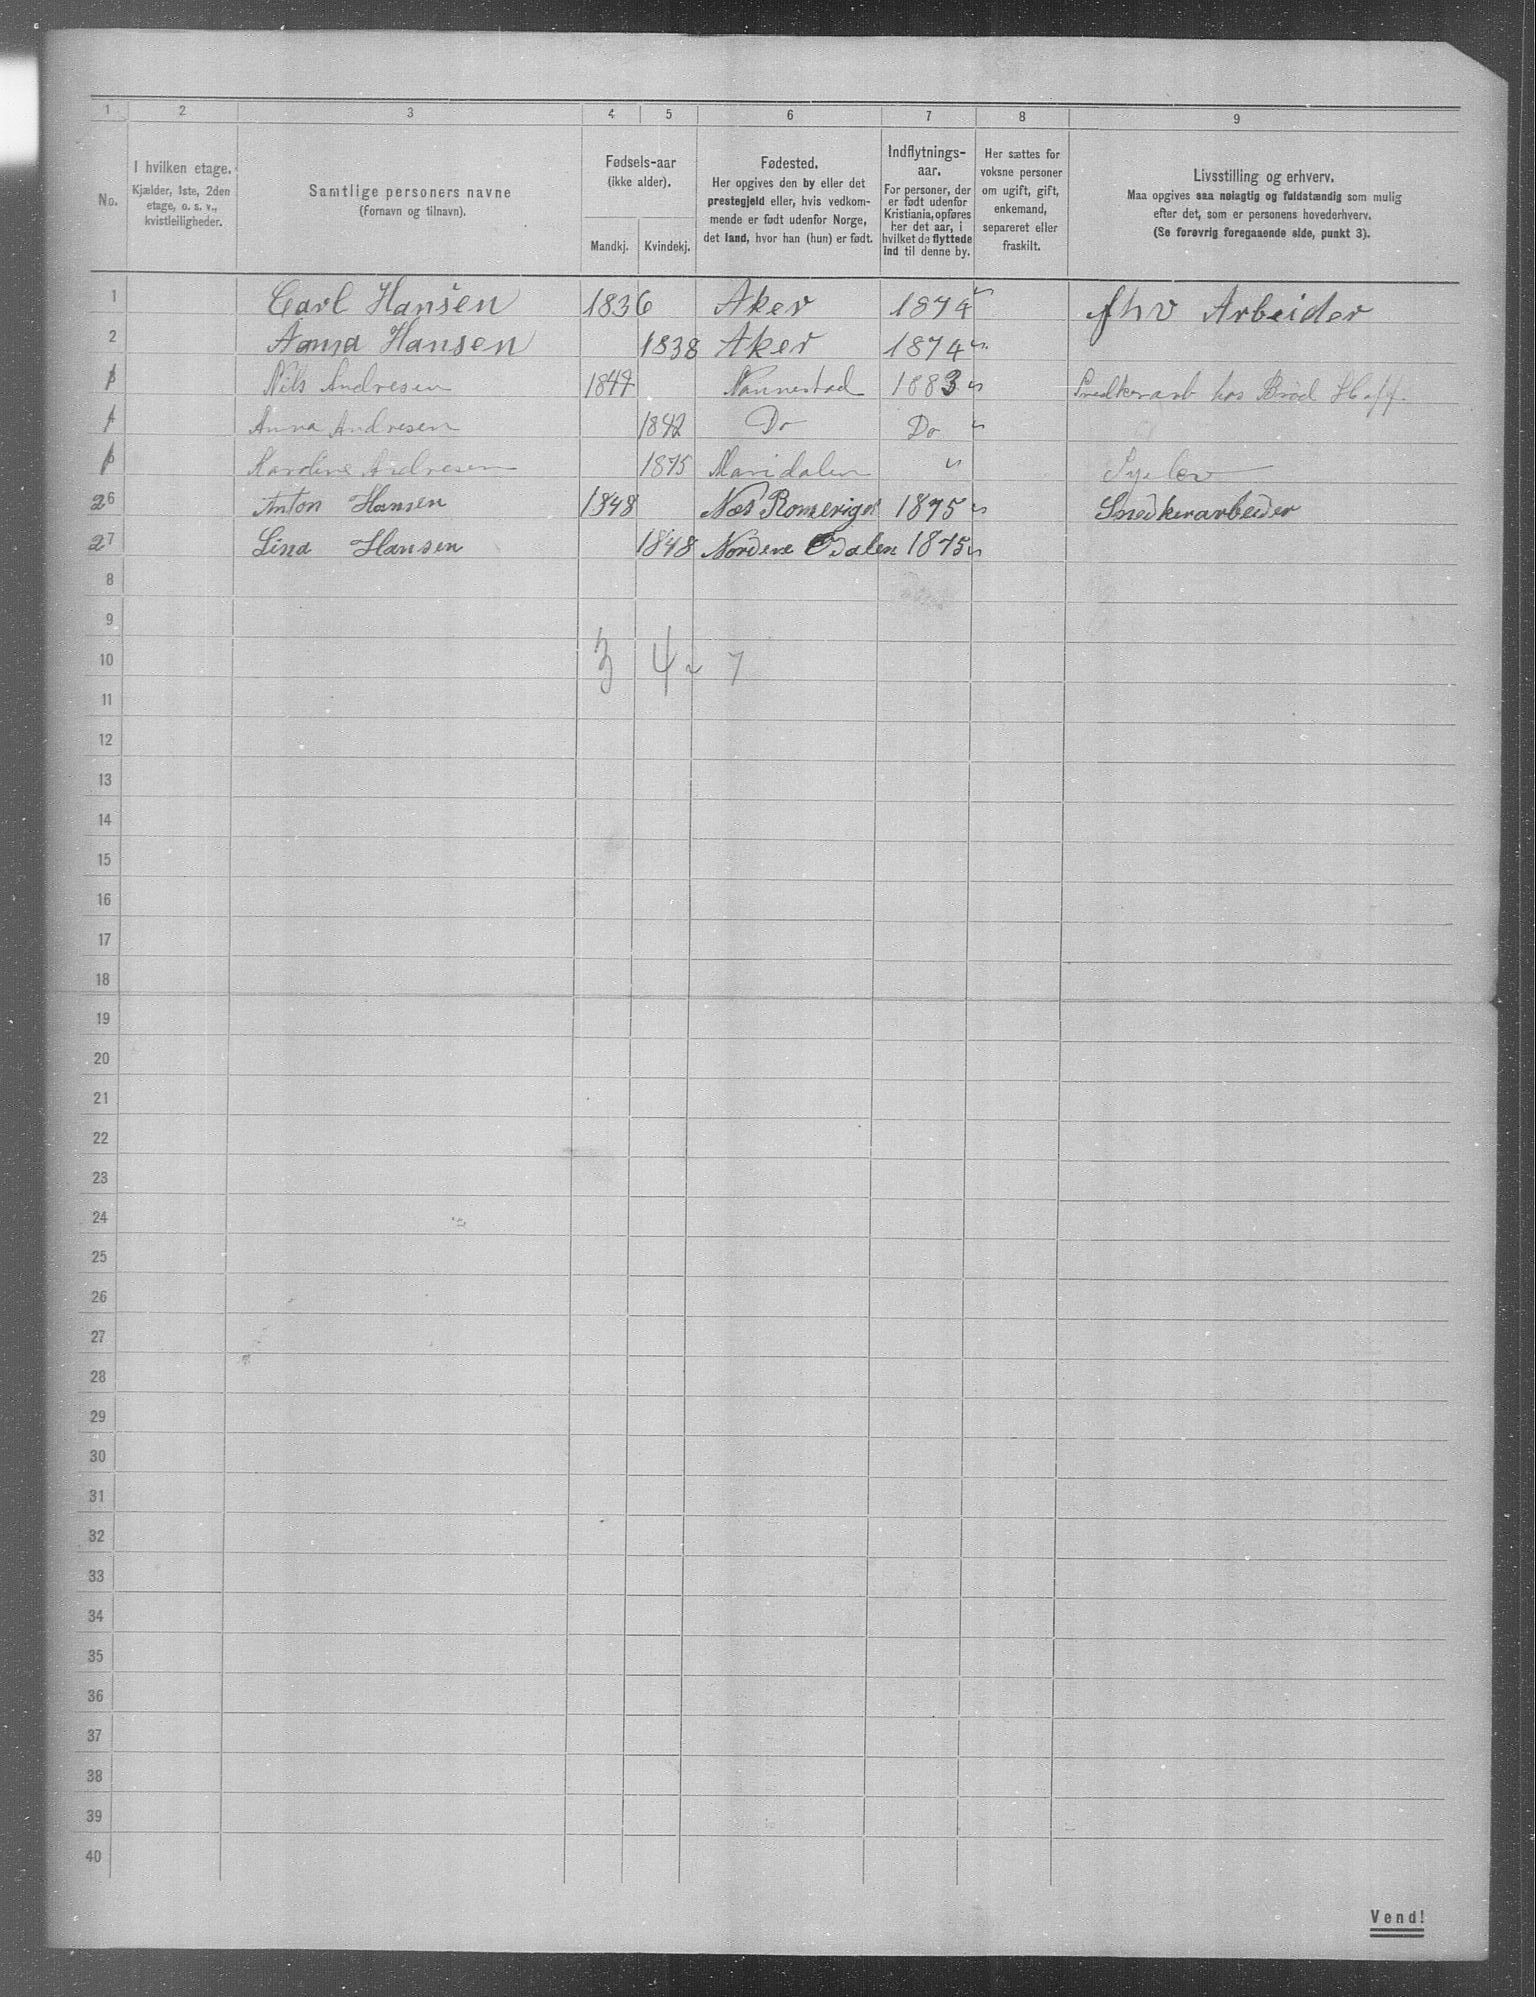 1 2 3 4 5 6 7 8 9
No.
I hvilken etage.
Kjælder, 1ste, 2den
etage, o. s. v.,
kvistleiligheder.
Samtlige personers navne
(Fornavn og tilnavn).
Fødsels-aar
(ikke alder).
Mandkj. Kvindekj.
Fødested.
Her opgives den by eller det
prestegjeld eller, hvis vedkom-
mende er født udenfor Norge,
det land, hvor han (hun) er født.
Indflytnings-
aar.
For personer, der
er født udenfor
Kristiania, opføres
her det aar, i
hvilket de flyttede
ind til denne by.
Her sættes for
voksne personer
om ugift, gift,
enkemand,
separeret eller
fraskilt.
Livsstilling og erhverv.
Maa opgives saa nøiagtig og fuldstændig som mulig
efter det, som er personens hovederhverv.
(Se forøvrig foregaaende side, punkt 3).
1 Carl Hansen 1836 Aker 1874 fhv Arbeider
2 Anna Hansen 1838 Aker 1874
Nils Andresen 1847 Nannestad 1883 Snedkerarb hos Brød Hoff.
Anna Andresen 1842 Do Do
Karoline Andresen 1875 Maridalen
2 6 Anton Hansen 1848 Nes Romerige 1875 Snedkerarbeider
2 7 Lina Hansen 1848 Nordere Odalen 1875
8
9
10 3 4 7
11
12
13
14
15
16
17
18
19
20
21
22
23
24
25
26
27
28
29
30
31
32
33
34
35
36
37
38
39
40
Vend!